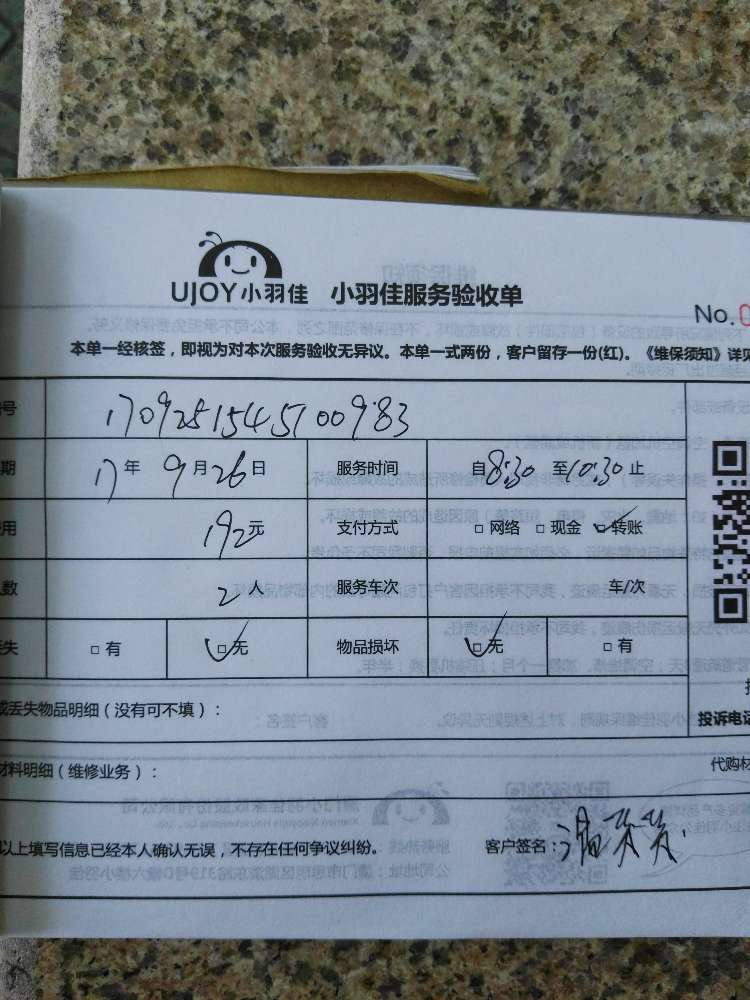 UJOY小羽佳 小羽佳服务验收单
No.0
本单一经核签，即视为对本次服务验收无异议。本单一式两份，客户留存一份(红)。《维保须知》详见
号 1709281545100983
期 17年9月26日 服务时间 自8:30至10:30止
用 192元 支付方式 □网络 □现金 ☑转账
数 2人 服务车次 车/次
失 □有 ☑无 物品损坏 ☑无 □有
或丢失物品明细（没有可不填）：
投诉电话
材料明细（维修业务）： 代购材
以上填写信息已经本人确认无误，不存在任何争议纠纷。 客户签名：